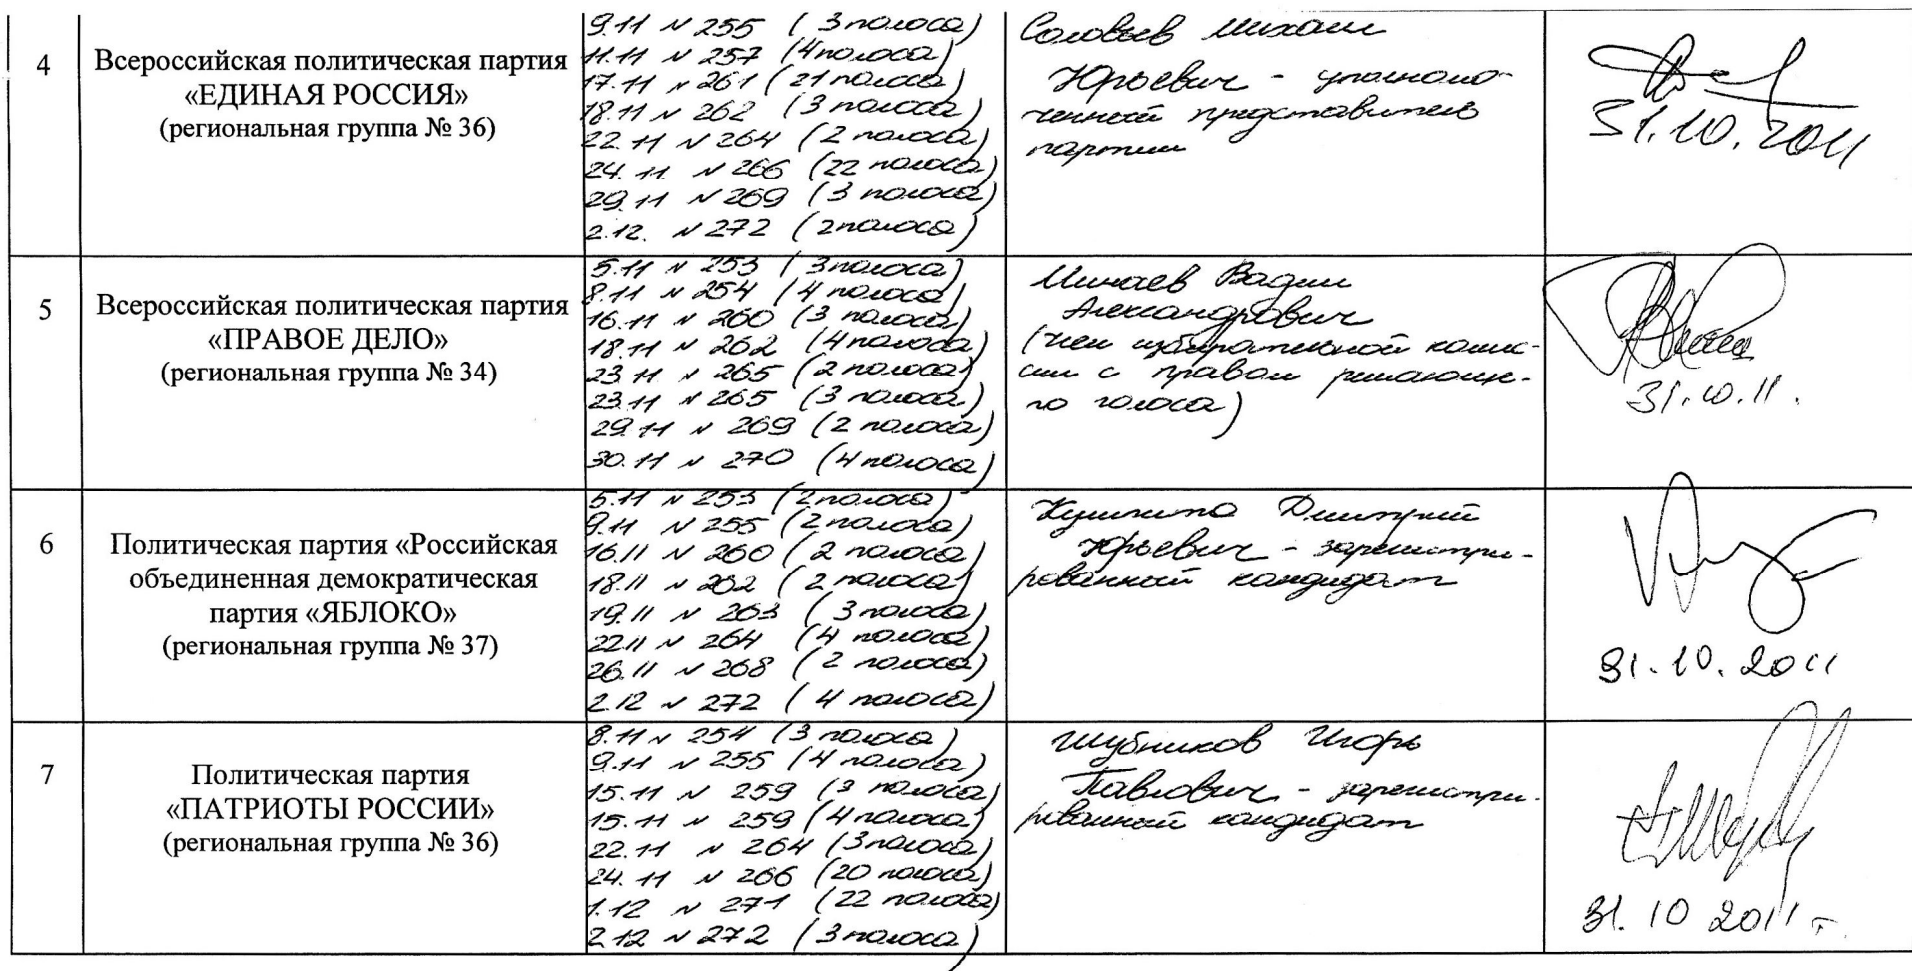 4
Всероссийская политическая партия
«ЕДИНАЯ РОССИЯ»
(региональная группа № 36)
9.11 N 255 (3 полоса)
11.11 N 257 (4 полоса)
17.11 N 261 (21 полоса)
18.11 N 262 (3 полоса)
22.11 N 264 (2 полоса)
24.11 N 266 (22 полоса)
29.11 N 269 (3 полоса)
2.12. N 272 (2 полоса)
Соловьев Михаил
Юрьевич - уполномо-
ченный представитель
партии
31.10.2011
5
Всероссийская политическая партия
«ПРАВОЕ ДЕЛО»
(региональная группа № 34)
5.11 N 253 (3 полоса)
8.11 N 254 (4 полоса)
16.11 N 260 (3 полоса)
18.11 N 262 (4 полоса)
23.11 N 265 (2 полоса)
23.11 N 265 (3 полоса)
29.11 N 269 (2 полоса)
30.11 N 270 (4 полоса)
Минаев Вадим
Александрович
(член избирательной комис-
сии с правом решающе-
го голоса)
31.10.11.
6
Политическая партия «Российская
объединенная демократическая
партия «ЯБЛОКО»
(региональная группа № 37)
5.11 N 253 (2 полоса)
9.11 N 255 (2 полоса)
16.11 N 260 (2 полоса)
18.11 N 262 (2 полоса)
19.11 N 263 (3 полоса)
22.11 N 264 (4 полоса)
26.11 N 268 (2 полоса)
2.12 N 272 (4 полоса)
Дмитрий
Юрьевич - зарегистри-
рованный кандидат
31.10.2011
7
Политическая партия
«ПАТРИОТЫ РОССИИ»
(региональная группа № 36)
8.11 N 254 (3 полоса)
9.11 N 255 (4 полоса)
15.11 N 259 (3 полоса)
15.11 N 259 (4 полоса)
22.11 N 264 (3 полоса)
24.11 N 266 (20 полоса)
1.12 N 271 (22 полоса)
2.12 N 272 (3 полоса)
Шубников Игорь
Павлович - зарегистри-
рованный кандидат
31.10 2011 г.